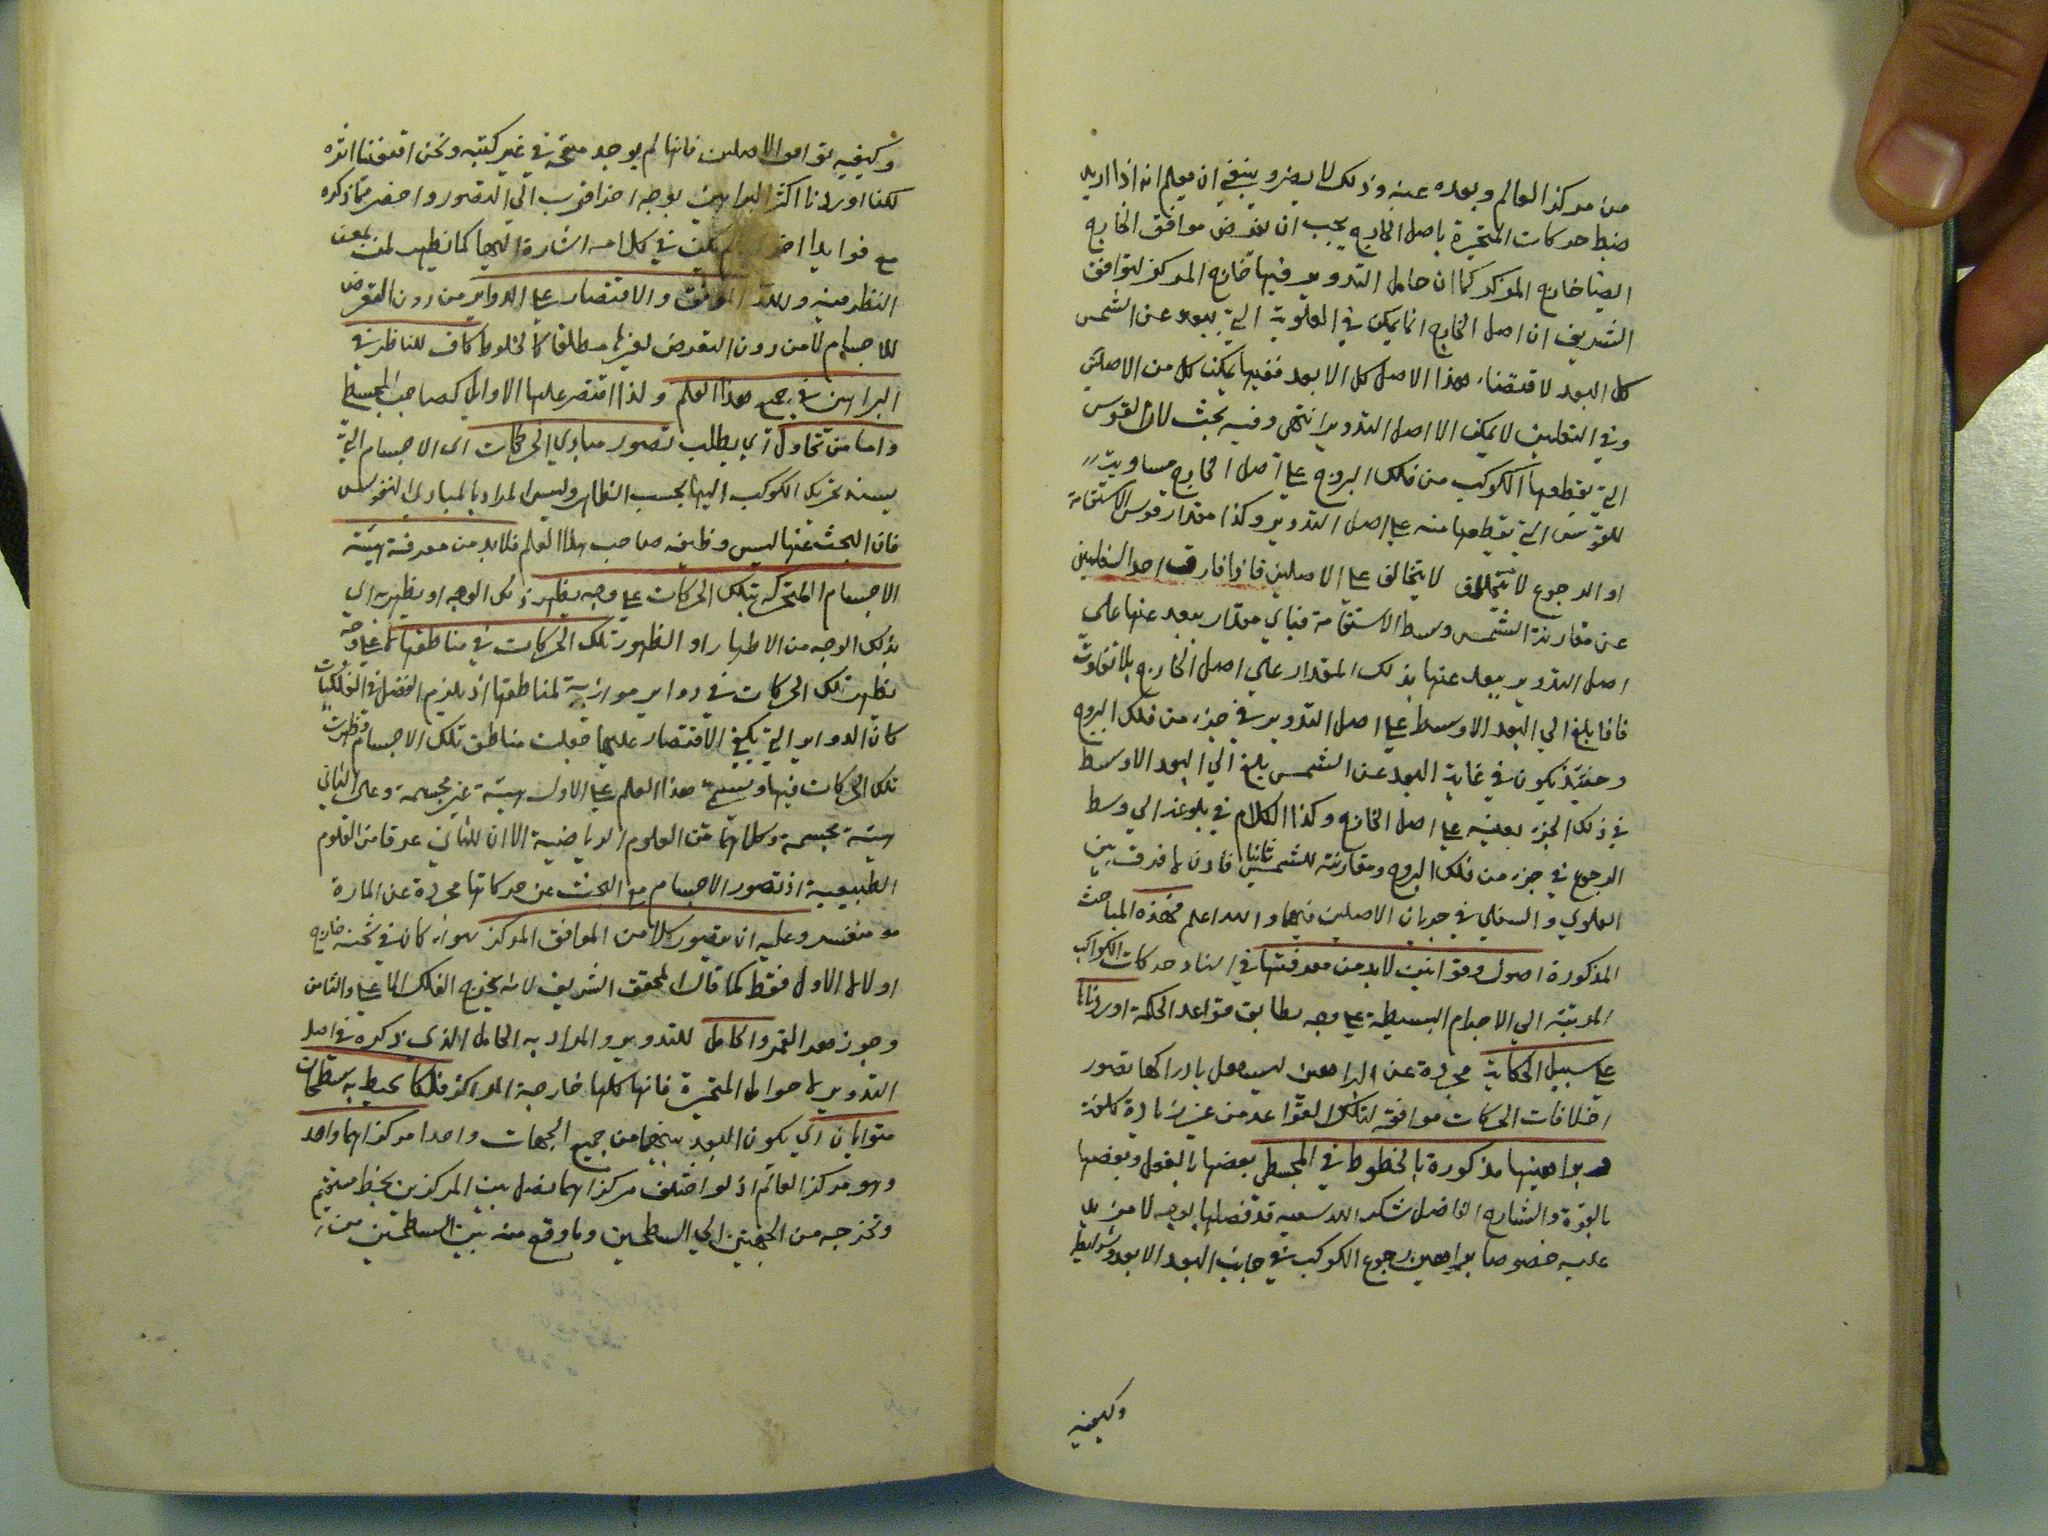 من مركز العالم وبعده عنه وذلك لا يضر وينبغي ان يعلم انه اذا اريد
ضبط حركات المتحيرة باصل الخارج يجب ان يفرض موافق الخارج
ايضا خارج المركز كما ان حامل التدوير فيها خارج المركز ليتوافق
الشريف ان اصل الخارج انما يمكن في العلوية التي تبعد عن الشمس
كل البعد لاقتضاء هذا الاصل كل الابعد ففيها يمكن كل من الاصلين
وفي السفليين لا يمكن الا اصل التدوير انتهى وفيه بحث لان القوس
التي يقطعها الكوكب من فلك البروج على اصل الخارج مساوية
للقوس التي يقطعها منه على اصل التدوير وكذا مقدار قوس الاستقامة
او الرجوع لا يتخالف على الاصلين فاذا فارق احد السفليين
عن مقارنة الشمس وسط الاستقامة فباي مقدار يبعد عنها على
اصل التدوير يبعد عنها بذلك المقدار على اصل الخارج بلا تفاوت
فاذا بلغ الى البعد الاوسط على اصل التدوير في جزء من فلك البروج
وحينئذ يكون في غاية البعد عن الشمس بلغ الى البعد الاوسط
في ذلك الجزء بعينه على اصل الخارج وكذا الكلام في بلوغه الى وسط
الرجوع في جزء من فلك البروج ومقارنته للشمس ثانيا فاذن لا فرق بين
العلوي والسفلي في جريان الاصلين فيهما والله اعلم فهذه المباحث
المذكورة اصول وقوانين لابد من معرفتها في اسناد حركات الكواكب
المرتبة الى الاجرام البسيطة على وجه يطابق قواعد الحكمة اوردناها
على سبيل الحكاية مجردة عن البراهين ليسهل بادراكها تصور
اختلافات الحركات موافقة لتلك القواعد من غير زيادة كلفة
وبراهينها مذكورة بالخطوط في المجسطي بعضها بالفعل وبعضها
بالقوة والشارح الفاضل شكر الله سعيه قد فصلها بوجه لا مزيد
عليه خصوصا براهين رجوع الكوكب في جانب البعد الابعد وشرايطه
وكيفية
وكيفية توافق الاصلين فانها لم يوجد في غير كتبه ونحن اقتفينا اثره
لكنا اوردنا اكثر البراهين بوجه اخر اقرب الى التصور واخصر مما ذكره
مع فوايد اخر لم يكن في كلامه اشارة اليها كما يظهر لمن يمعن
النظر فيه والله الموفق والاقتصار على الدواير من دون التعرض
للاجسام لا من دون التعرض لغيرها مطلقا كالخطوط كاف للناظر في
البراهين في جميع هذا العلم ولذا اقتصر عليها الاوائل كصاحب المجسطي
واما من تحاول اي يطلب تصور مبادي الحركات اي الاجسام التي
يسند تحريك الكوكب اليها بحسب الظاهر وليس المراد بالمبادي النفوس
فان البحث عنها ليس وظيفة صاحب هذا العلم فلابد من معرفة هيئة
الاجسام المتحركة بتلك الحركات على وجه يظهر ذلك الوجه او يظهر به اي
بذلك الوجه من الاظهار او الظهور تلك الحركات في مناطقها لا على وجه
يظهر تلك الحركات في دواير موازية لمناطقها اذ يلزم الفضل في الفلكيات
كان الدواير التي يكفي الاقتصار عليها جعلت مناطق تلك الاجسام فظهرت
تلك الحركات فيها ويسمى هذا العلم على الاول هيئة غير مجسمة وعلى الثاني
هيئة مجسمة وكلاهما من العلوم الرياضية الا ان للثاني عرقا من العلوم
الطبيعية اذ تصور الاجسام مع البحث عن حركاتها مجردة عن المادة
وعليه ان يتصور كلا من الموافق المركز سواء كان في ثخنه خارج
او لا لا الاول فقط كما قال المحقق الشريف لانه يخرج الفلك الاعلى والثامن
وجوزهر القمر والحامل للتدوير والمراد به الحامل الذي ذكره في اصل
التدوير لا حوامل المتحيرة فانها كلها خارجة المراكز فلكا يحيط به سطحان
متوازيان اي يكون البعد بينهما من جميع الجهات واحدا مركزاهما واحد
وهو مركز العالم اذ لو اختلف مركزاهما نصل بين المركزين بخط مستقيم
ونخرجه من الجهتين الى السطحين وما وقع منه بين السطحين من